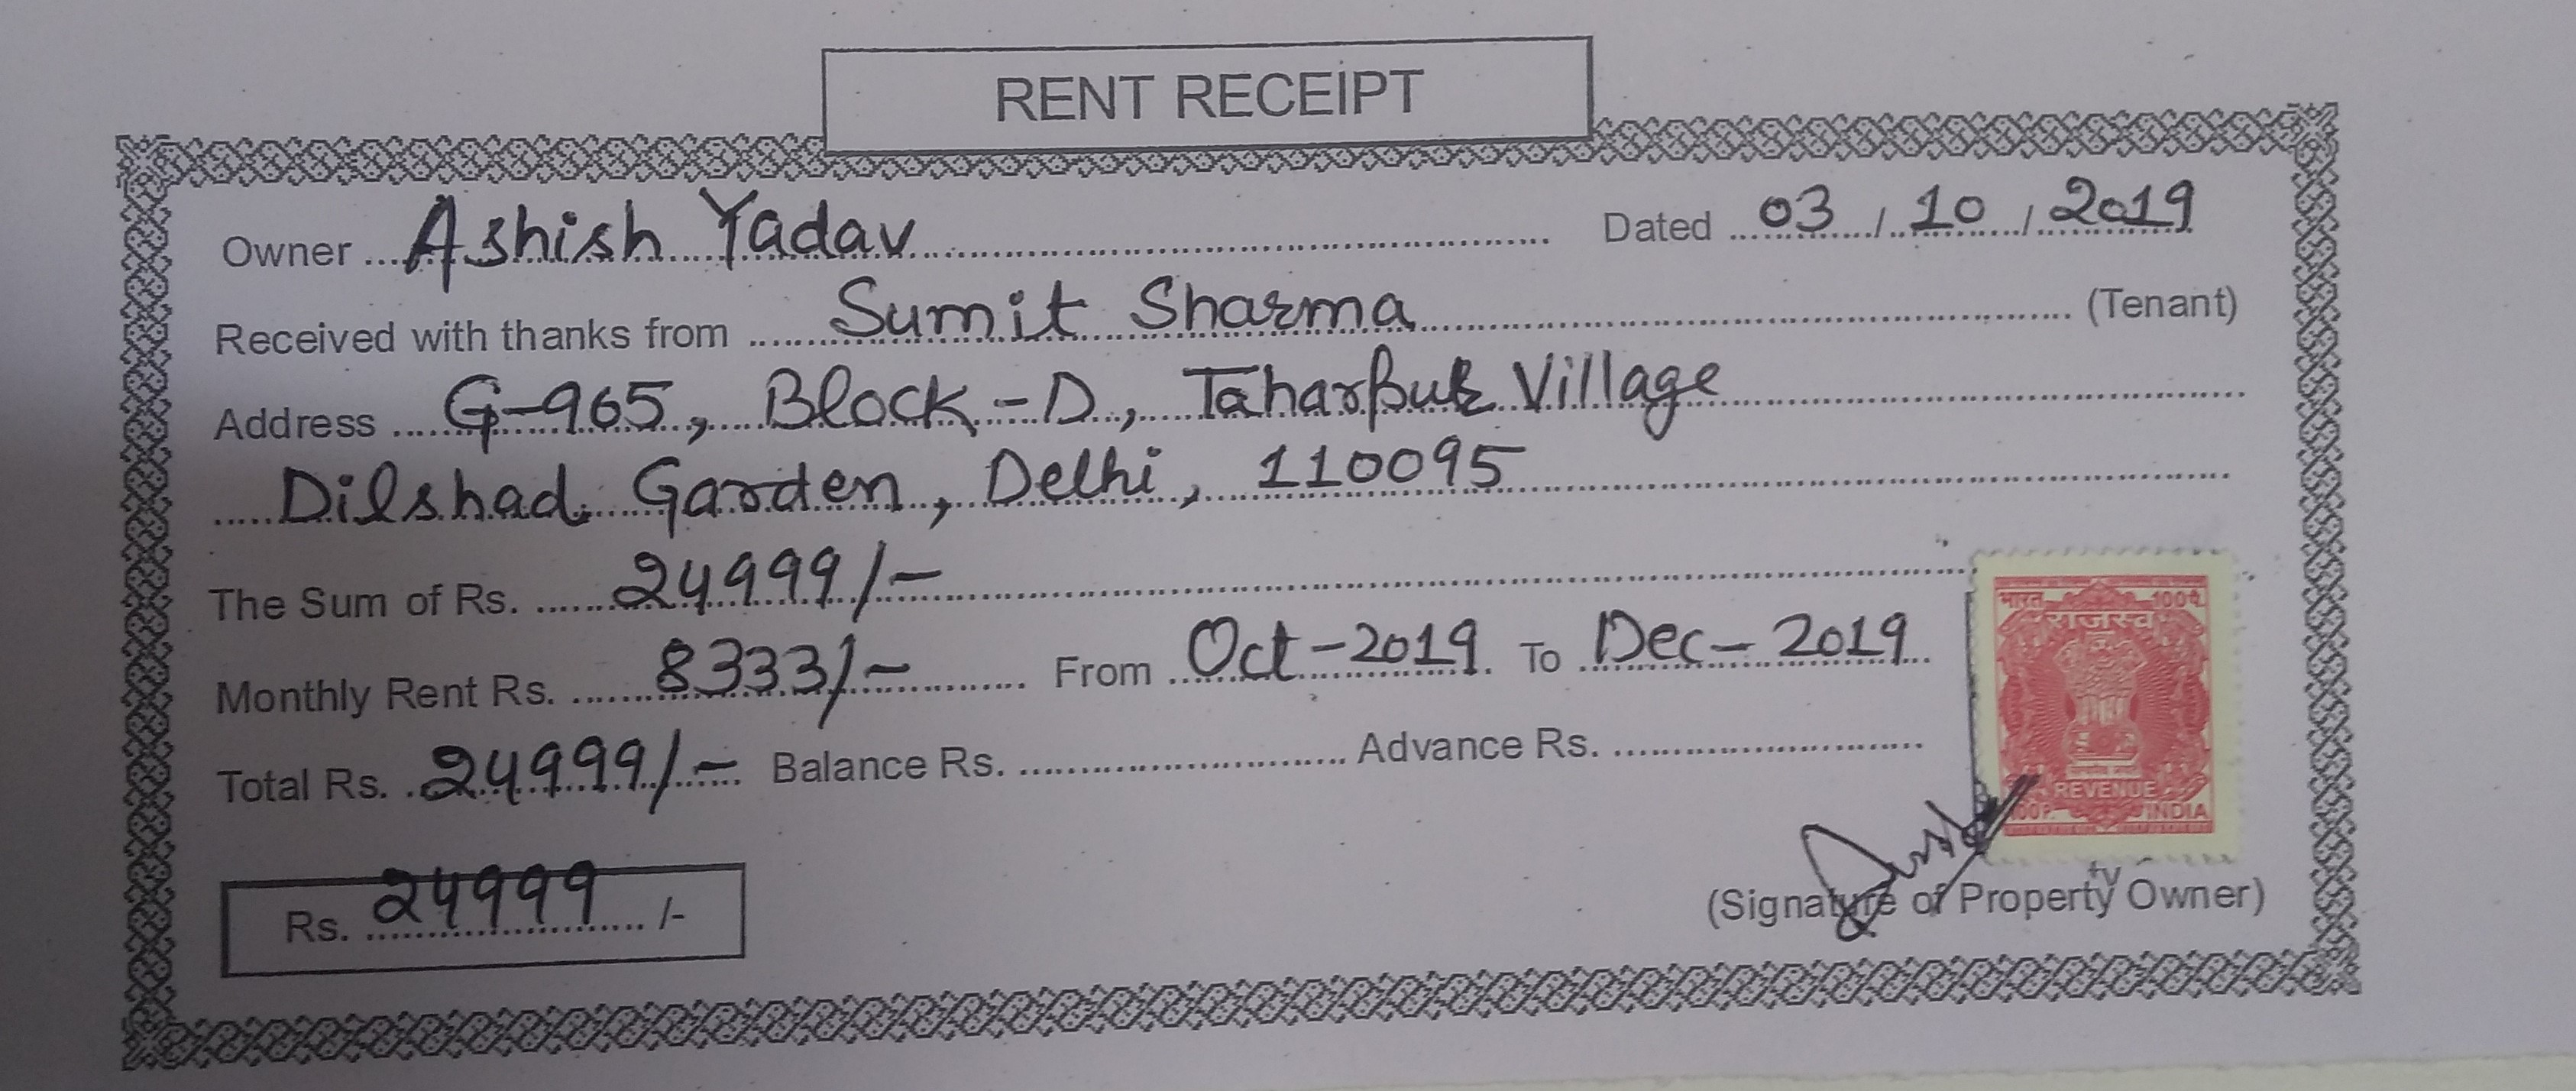 RENT RECEIPT
Owner Ashish Yadav Dated 03 / 10 / 2019
Received with thanks from Sumit Sharma (Tenant)
Address G-965, Block-D, Taharpur Village
Dilshad Garden, Delhi, 110095
The Sum of Rs. 24999/-
Monthly Rent Rs. 8333/- From Oct-2019 To Dec-2019
Total Rs. 24999/- Balance Rs. Advance Rs.
भारत 100पै.
राजस्व
REVENUE
100P. INDIA
Rs. 24999 /-
(Signature of Property Owner)